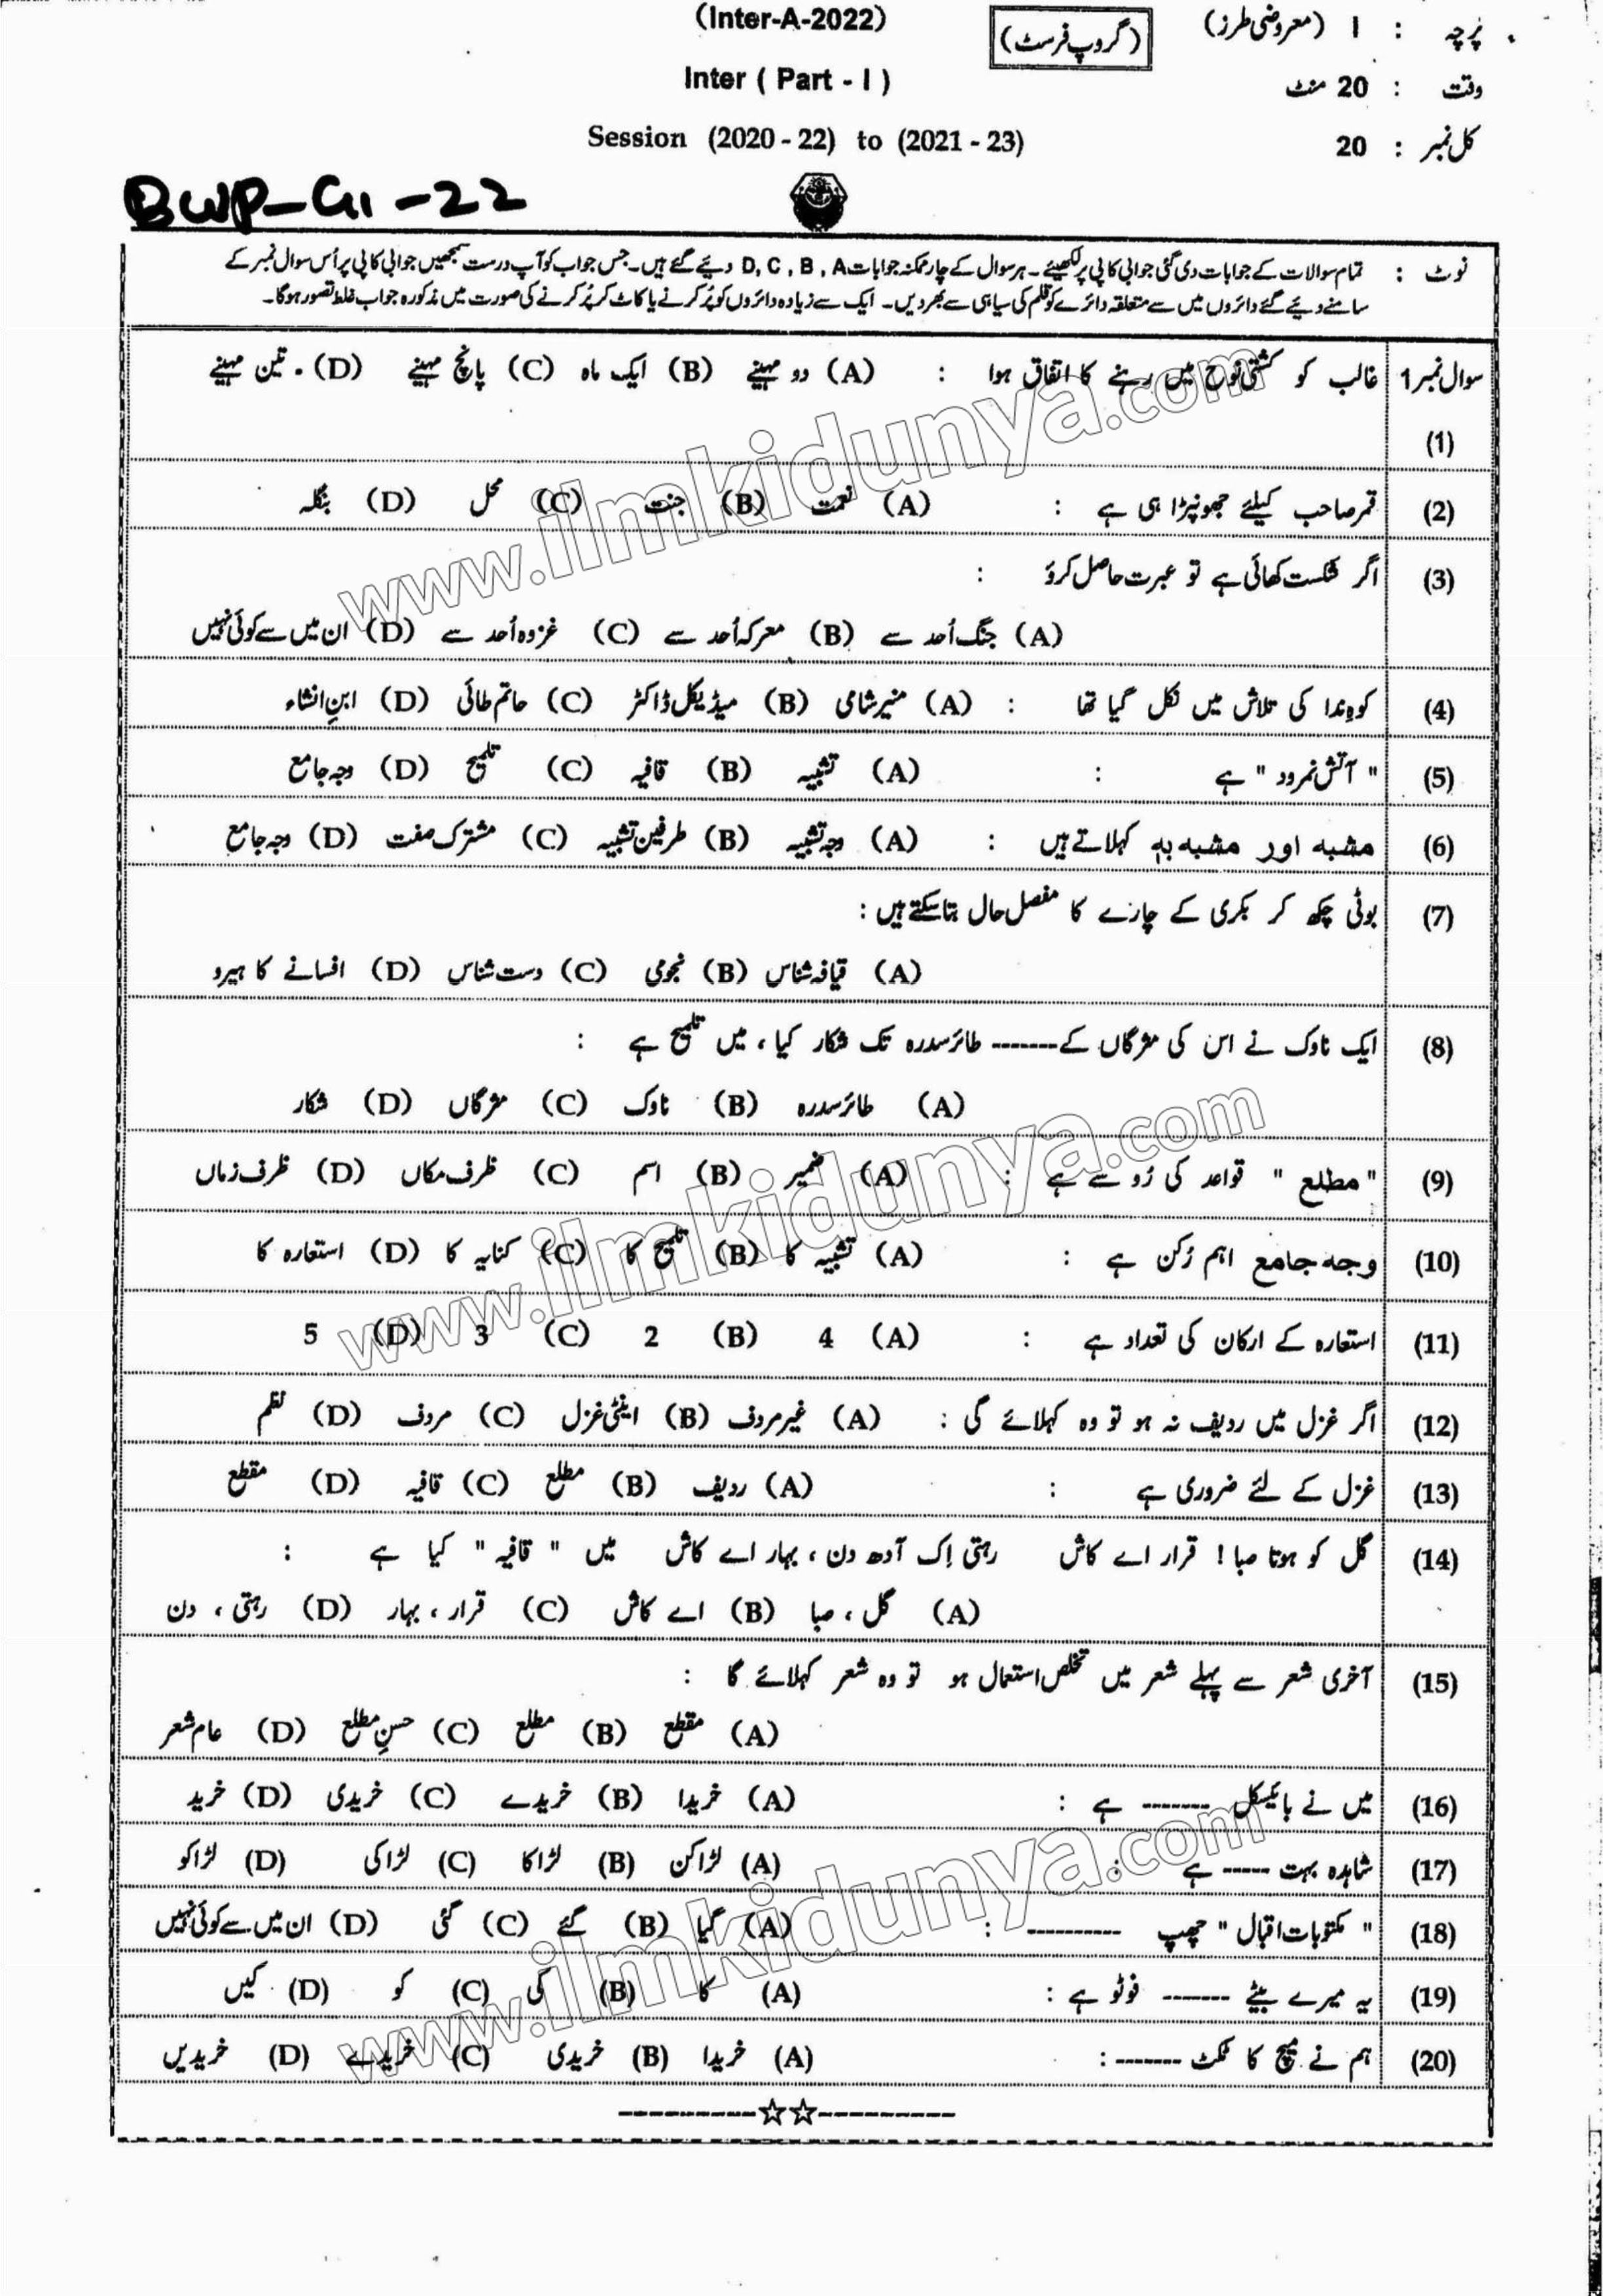 (Inter-A-2022)
پرچہ : I (معروضی طرز)
(گروپ فرسٹ)
Inter ( Part - I )
وقت : 20 منٹ
Session (2020 - 22) to (2021 - 23)
کل نمبر : 20
BWP-G1-22
نوٹ : تمام سوالات کے جوابات دی گئی جوابی کاپی پر لکھیئے۔ ہر سوال کے چار ممکنہ جوابات D, C , B , A دیئے گئے ہیں۔ جس جواب کو آپ درست سمجھیں جوابی کاپی پر اُس سوال نمبر کے
سامنے دیئے گئے دائروں میں سے متعلقہ دائرے کو قلم کی سیاہی سے بھر دیں۔ ایک سے زیادہ دائروں کو پُر کرنے یا کاٹ کر پُر کرنے کی صورت میں مذکورہ جواب غلط تصور ہو گا۔
سوال نمبر 1 غالب کو کشتی نوح میں رہنے کا اتفاق ہوا : (A) دو مہینے (B) ایک ماہ (C) پانچ مہینے (D) تین مہینے
(1)
(2) قمر صاحب کیلئے جھونپڑا ہی ہے : (A) نعمت (B) جنت (C) محل (D) بنگلہ
(3) اگر شکست کھائی ہے تو عبرت حاصل کرؤ :
(A) جنگ اُحد سے (B) معرکہ اُحد سے (C) غزوہ اُحد سے (D) ان میں سے کوئی نہیں
(4) کوہِ ندا کی تلاش میں نکل گیا تھا : (A) منیر شامی (B) میڈیکل ڈاکٹر (C) حاتم طائی (D) ابنِ انشاء
(5) " آتش نمرود " ہے : (A) تشبیہ (B) قافیہ (C) تلمیح (D) وجہ جامع
(6) مشبہ اور مشبہ بہ کہلاتے ہیں : (A) وجہ تشبیہ (B) طرفین تشبیہ (C) مشترک صفت (D) وجہ جامع
(7) بوٹی چکھ کر بکری کے چارے کا مفصل حال بتا سکتے ہیں :
(A) قیافہ شناس (B) نجومی (C) دست شناس (D) افسانے کا ہیرو
(8) ایک ناوک نے اس کی مژگاں کے------- طائر سدرہ تک شکار کیا ، میں تلمیح ہے :
(A) طائر سدرہ (B) ناوک (C) مژگاں (D) شکار
(9) " مطلع " قواعد کی رُو سے ہے : (A) ضمیر (B) اسم (C) ظرف مکاں (D) ظرف زماں
(10) وجہ جامع اہم رُکن ہے : (A) تشبیہ کا (B) تلمیح کا (C) کنایہ کا (D) استعارہ کا
(11) استعارہ کے ارکان کی تعداد ہے : (A) 4 (B) 2 (C) 3 (D) 5
(12) اگر غزل میں ردیف نہ ہو تو وہ کہلائے گی : (A) غیر مردف (B) اینٹی غزل (C) مردف (D) نظم
(13) غزل کے لئے ضروری ہے : (A) ردیف (B) مطلع (C) قافیہ (D) مقطع
(14) گل کو ہوتا صبا ! قرار اے کاش رہتی اِک آدھ دن ، بہار اے کاش میں " قافیہ " کیا ہے :
(A) گل ، صبا (B) اے کاش (C) قرار ، بہار (D) رہتی ، دن
(15) آخری شعر سے پہلے شعر میں تخلص استعمال ہو تو وہ شعر کہلائے گا :
(A) مقطع (B) مطلع (C) حسنِ مطلع (D) عام شعر
(16) میں نے بائیسکل ------- ہے : (A) خریدا (B) خریدے (C) خریدی (D) خرید
(17) شاہدہ بہت ----- ہے : (A) لڑاکن (B) لڑاکا (C) لڑاکی (D) لڑاکو
(18) " مکتوبات اقبال " چھپ ---------- : (A) گیا (B) گئے (C) گئی (D) ان میں سے کوئی نہیں
(19) یہ میرے بیٹے ------- فوٹو ہے : (A) کا (B) کی (C) کو (D) کیں
(20) ہم نے میچ کا ٹکٹ ------- : (A) خریدا (B) خریدی (C) خریدے (D) خریدیں
----------☆☆----------
www.ilmkidunya.com
www.ilmkidunya.com
www.ilmkidunya.com